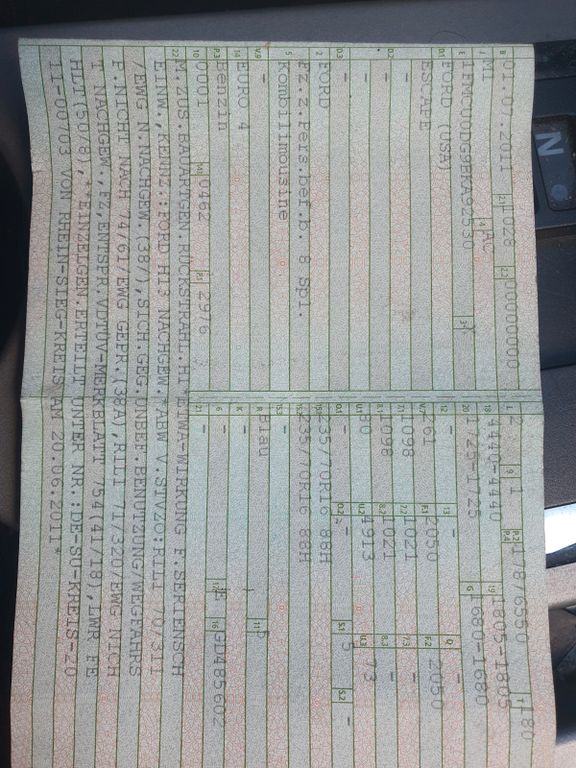 B 01.07.2011 2.1 1028 2.2 00000000 L 2 9 1 P.2 P.4 178/6550 T 180
J M1 4 AC 18 4440-4440 19 1805-1805
E 1FMCU0DG9BKA92530 3 20 1725-1725 G 1680-1680
D.1 FORD (USA) 12 - 13 - Q -
ESCAPE V.7 261 F.1 2050 F.2 2050
D.2 - 7.1 1098 7.2 1021 7.3 -
- 8.1 1098 8.2 1021 8.3 -
- U.1 80 U.2 4913 U.3 73
D.3 - O.1 - O.2 - S.1 5 S.2 -
2 FORD 15.1 235/70R16 88H
5 Fz.z.Pers.bef.b. 8 Spl. 15.2 235/70R16 88H
Kombilimousine 15.3 -
V.9 - R Blau 11 5
14 EURO 4 K -
P.3 Benzin 6 - 17 E 16 GD485602
10 0001 14.1 0462 P.1 2976 21 -
22 M.ZUS.BAUARTGEN.RÜCKSTRAHL.HI*ETWA-WIRKUNG F.SERIENSCH
EINW.,KENNZ.:FORD H13 NACHGEW.*ABW V.STVZO:RILI 70/311
/EWG N.NACHGEW.(38/),SICH.GEG.UNBEF.BENUTZUNG/WEGFAHRS
F.NICHT NACH 74/61/EWG GEPR.(38A),RILI 71/320/EWG NICH
T NACHGEW.,FZ.ENTSPR.VDTÜV-MERKBLATT 754(41/18),LWR FE
HLT(50/8),*EINZELGEN.ERTEILT UNTER NR.:DE-SU-KREIS-20
11-00703 VON RHEIN-SIEG-KREIS AM 20.06.2011*
N